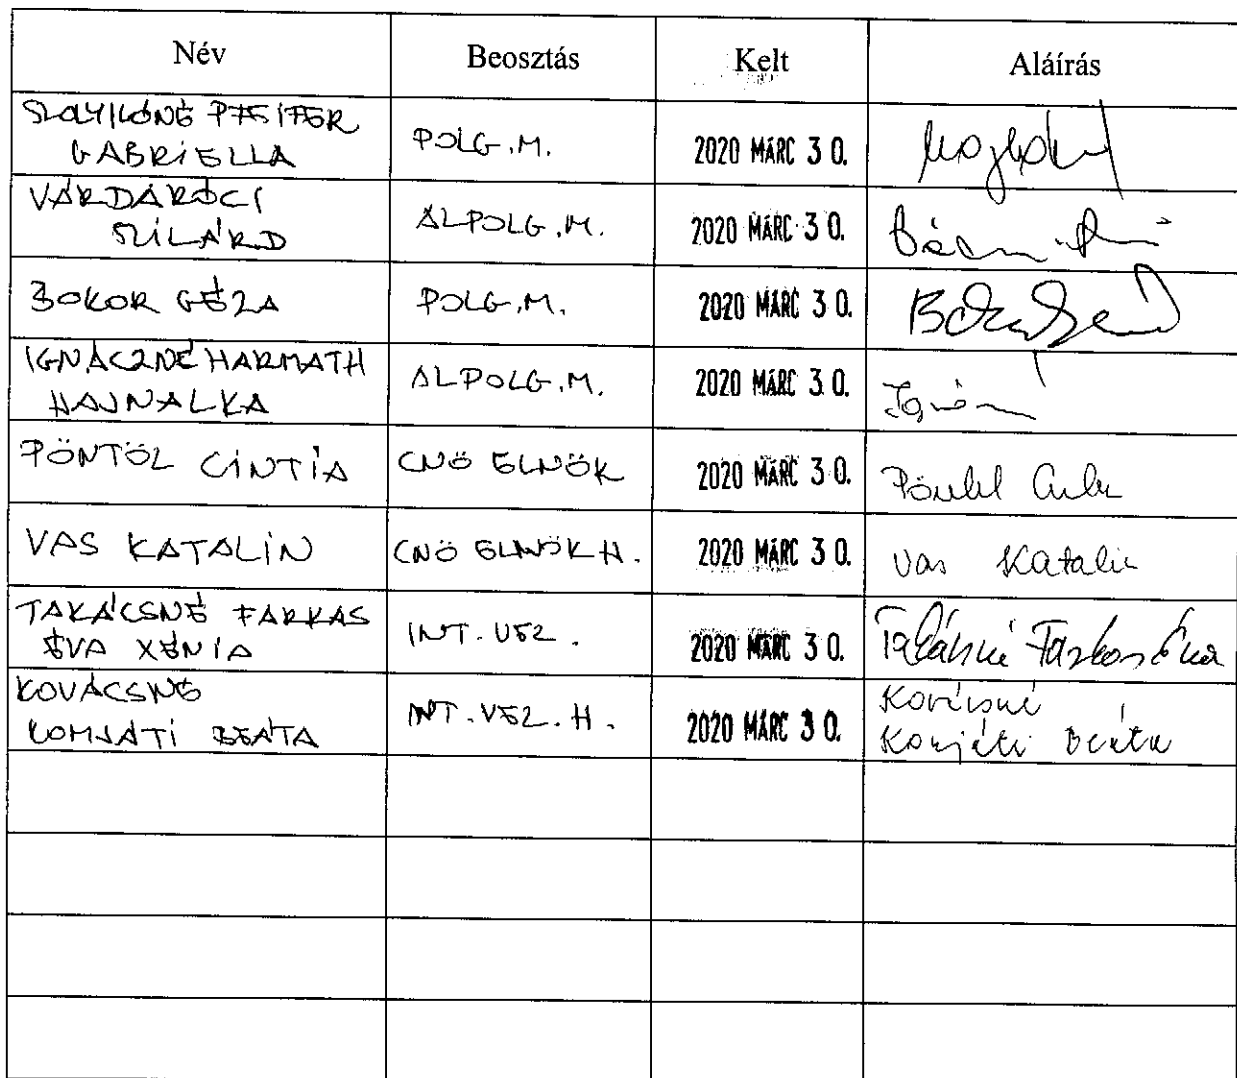 Név Beosztás Kelt Aláírás
PFEIFER
GABRIELLA POLG.M. 2020 MÁRC 30.
VÁRDARÓCI
SZILÁRD ALPOLG.M. 2020 MÁRC 30.
BOKOR GÉZA POLG.M. 2020 MÁRC 30.
IGNÁCZNÉ HARMATH
HAJNALKA ALPOLG.M. 2020 MÁRC 30.
PÖNTÖL CINTIA CNÖ ELNÖK 2020 MÁRC 30.
VAS KATALIN CNÖ ELNÖK H. 2020 MÁRC 30. Vas Katalin
TAKÁCSNÉ FARKAS
ÉVA XÉNIA INT.VEZ. 2020 MÁRC 30. Takácsné Farkas Éva
KOVÁCSNÉ
KOMJÁTI BEÁTA INT.VEZ.H. 2020 MÁRC 30. Kovácsné
Komjáti Beáta